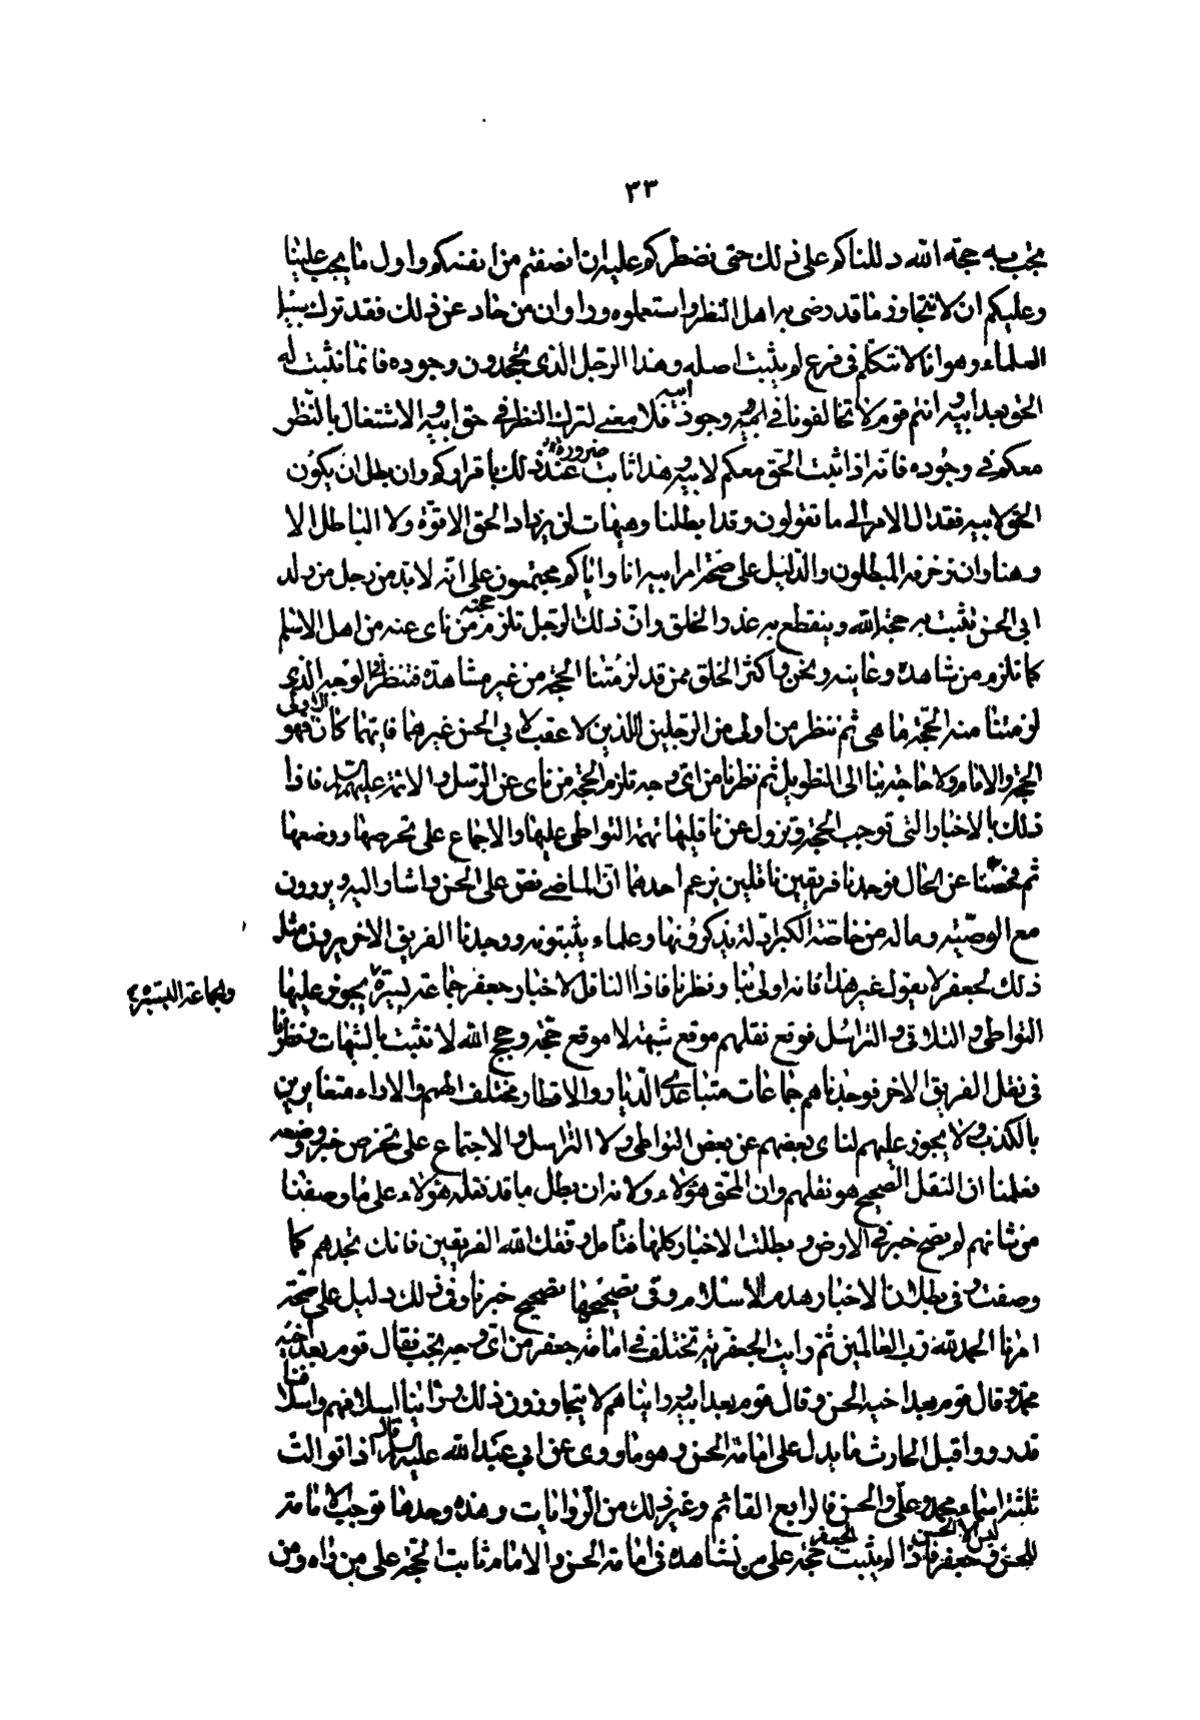 ٣٣
يجب به حجة الله دللناكم على ذلك حتى نضطركم عليه ان انصفتم من انفسكم واول ما يجب علينا
وعليكم ان لا نتجاوز ما قد رضى به اهل النظر واستعملوه وراوا ان من حاد عن ذلك فقد ترك سبيل
العلماء وهو انا لا نتكلم فى فرع لم يثبت اصله وهذا الرجل الذى تجحدون وجوده فانما نثبت له
الحق بعد ابيه وانتم قوم لا تخالفونا فى وجود ابيه فلا معنى لترك النظر فى حق ابيه والاشتغال بالنظر
معكم فى وجوده فانه اذا ثبت الحق معكم لابيه فهذا ثابت ضرورة عند ذلك باقراركم وان بطل ان يكون
الحق لابيه فقد ال الامر الى ما تقولون وقد ابطلنا وهيهات لن يزداد الحق الا قوة ولا الباطل الا
وهنا وان زخرفه المبطلون والدليل على صحة امر ابيه انا واياكم مجتمعون على انه لا بد من رجل من ولد
ابى الحسن تثبت به حجة الله وينقطع به عذر الخلق وان ذلك الرجل تلزم حجته من ناى عنه من اهل الاسلم
كما تلزم من شاهده وعاينه ونحن واكثر الخلق ممن قد لزمتنا الحجة من غير مشاهدة فننظر فى الوجه الذى
لزمتنا منه الحجة ما هى ثم ننظر من اولى من الرجلين اللذين لا عقب لابى الحسن غيرهما فايهما كان الاولى فهو
الحجة والامام ولا حاجة بنا الى التطويل ثم نظرنا من اى وجه تلزم الحجة من ناى عن الرسل والائمة عليهم السلم فاذا
ذلك بالاخبار التى توجب الحجة وتزول عن ناقليها تهمة التواطى عليها والاجماع على تخرصها ووضعها
ثم فحصنا عن الحال فوجدنا فريقين ناقلين يزعم احدهما ان الماضى نص على الحسن واشار اليه ويروون
مع الوصية وما له من خاصة الكبر ادلة يذكرونها وعلماء يثبتونه ووجدنا الفريق الاخر يروون مثل
ذلك لجعفر لا يقول غير هذا فانه اولى بنا ونظرنا فاذا الناقل لاخبار جعفر جماعة يسيرة يجوز عليها
والجماعة اليسيرة
التواطى والتلاقى والتراسل فوقع نقلهم موقع شبهة لا موقع حجة وحجج الله لا تثبت بالشبهات ونظرنا
فى نقل الفريق الاخر فوجدناهم جماعات متباعدى الديار والاقطار مختلفى الهمم والاراء متغايرين
بالكذب ولا يجوز عليهم لناى بعضهم عن بعض التواطى ولا التراسل والاجتماع على تخرص خبر ووضعه
فعلمنا ان النقل الصحيح هو نقلهم وان المحق هؤلاء ولانه ان بطل ما قد نقله هؤلاء على ما وصفنا
من شانهم لم يصح خبر فى الارض وبطلت الاخبار كلها فتامل وفقك الله الفريقين فانك تجدهم كما
وصفت وفى بطلان الاخبار هدم الاسلام وفى تصحيحها تصحيح خبرنا وفى ذلك دليل على صحة
امرنا الحمد لله رب العالمين ثم رايت الجعفرية تختلف فى امامة جعفر من اى وجه تجب فقال قوم بعد اخيه
محمد وقال قوم بعد اخيه الحسن وقال قوم بعد ابيه ورايناهم لا يتجاوزون ذلك وراينا اسلافهم واسلافنا
قد رووا قبل الحادث ما يدل على امامة الحسن وهو ما روى عن ابى عبد الله عليه السلم قال اذا توالت
ثلثة اسماء محمد وعلى والحسن فالرابع القائم وغير ذلك من الروايات وهذه وحدها توجب الامامة
للحسن وليس الا الحسن وجعفر فاذا لم يثبت لجعفر حجة على من شاهده فى امامة الحسن والامام ثابت الحجة على من راه ومن